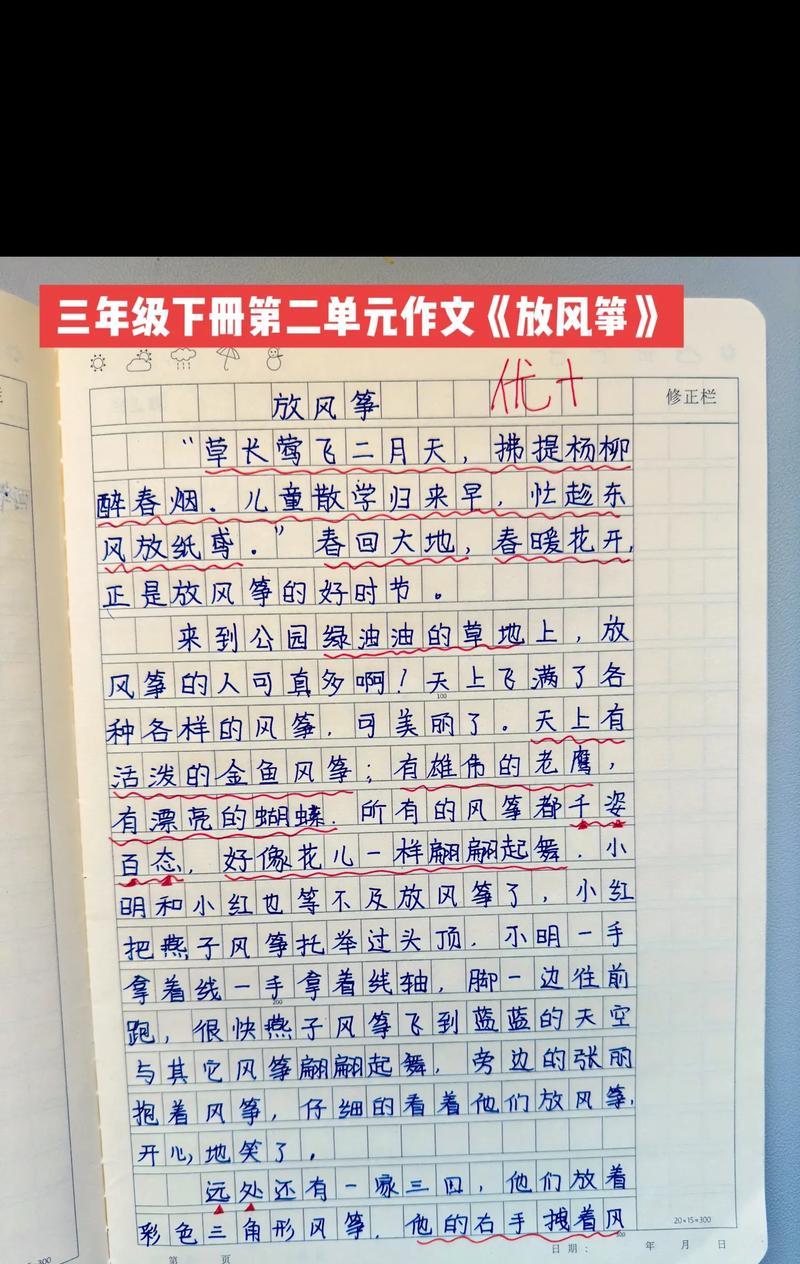 三年级下册第二单元作文《放风筝》
优+
放风筝
修正栏
“草长莺飞二月天，拂提杨柳
醉春烟．儿童散学归来早，忙趁东
风放纸鸢．”春回大地，春暖花开，
正是放风筝的好时节。
来到公园绿油油的草地上，放
风筝的人可真多啊！天上飞满了各
100
种各样的风筝．可美丽了。天上有
活泼的金鱼风筝；有雄伟的老鹰，
有漂亮的蝴蝶．所有的风筝都千姿
百态，好像花儿一样翩翩起舞．小
明和小红也等不及放风筝了，小红
把燕子风筝托举过头顶．小明一手
拿着线一手拿着线轴，脚一边往前
200
跑，很快燕子风筝飞到蓝蓝的天空
与其它风筝翩翩起舞，旁边的张丽
抱着风筝，仔细的看着他们放风筝，
开心地笑了．
远处还有一家三口，他们放着
彩色三角形风筝．他的右手拽着风
300
20×15=300
第 页
日期： 年 月 日
300